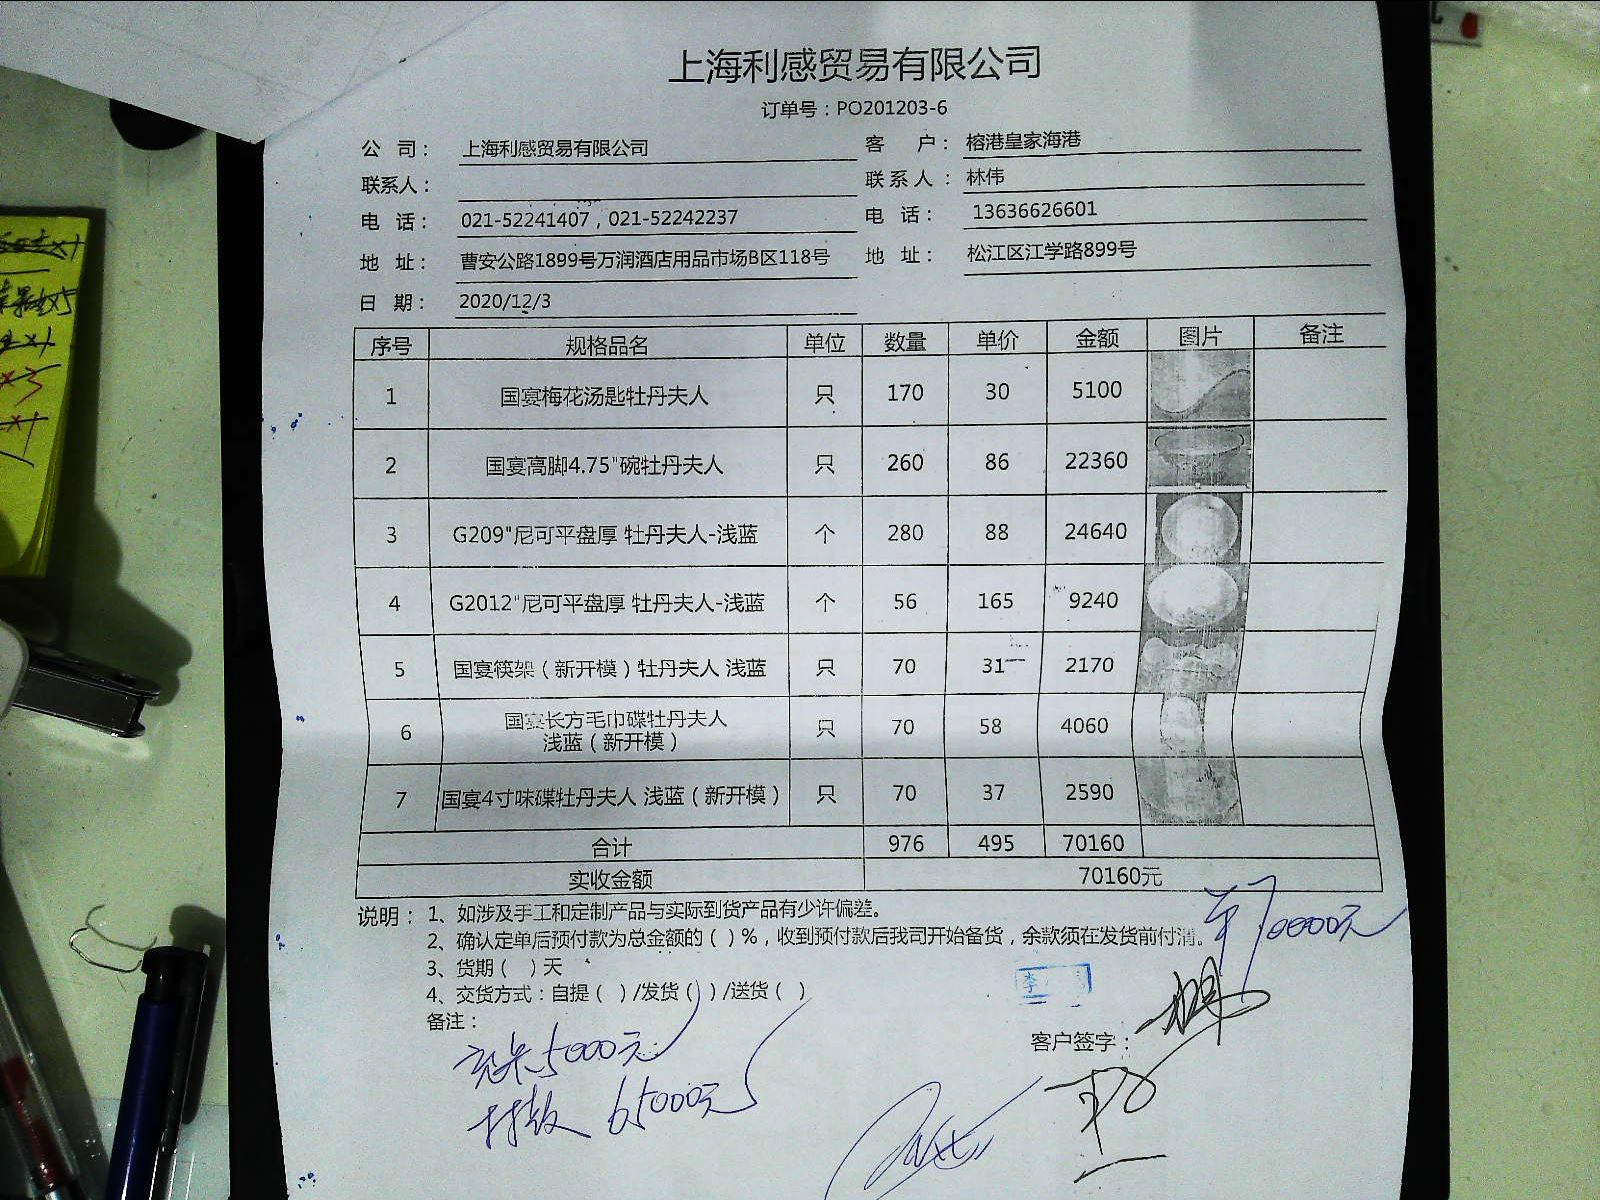 上海利感贸易有限公司
订单号：PO201203-6
公 司： 上海利感贸易有限公司 客 户： 榕港皇家海港
联系人： 联系人： 林伟
电 话： 021-52241407，021-52242237 电 话： 13636626601
地 址： 曹安公路1899号万润酒店用品市场B区118号 地 址： 松江区江学路899号
日 期： 2020/12/3
序号 规格品名 单位 数量 单价 金额 图片 备注
1 国宴梅花汤匙牡丹夫人 只 170 30 5100
2 国宴高脚4.75"碗牡丹夫人 只 260 86 22360
3 G209"尼可平盘厚 牡丹夫人-浅蓝 个 280 88 24640
4 G2012"尼可平盘厚 牡丹夫人-浅蓝 个 56 165 9240
5 国宴筷架（新开模）牡丹夫人 浅蓝 只 70 31 2170
6 国宴长方毛巾碟牡丹夫人 浅蓝（新开模） 只 70 58 4060
7 国宴4寸味碟牡丹夫人 浅蓝（新开模） 只 70 37 2590
合计 976 495 70160
实收金额 70160元
说明：1、如涉及手工和定制产品与实际到货产品有少许偏差。
2、确认定单后预付款为总金额的（ ）%，收到预付款后我司开始备货，余款须在发货前付清。
70000元
3、货期（ ）天
4、交货方式：自提（ ）/发货（ ）/送货（ ）
李
备注：
客户签字：
5000元
65000元